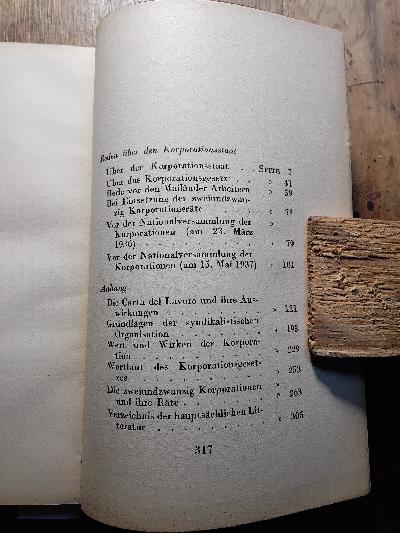 Reden über den Korporationsstaat
Über der Korporationsstaat . . SEITE 7
Über das Korporationsgesetz . . » 41
Rede vor den Mailänder Arbeitern » 59
Bei Einsetzung der zweiundzwan-
zig Korporationsräte . . . . »
Vor der Nationalversammlung der
Korporationen (am 23. März
1936) . . . . . . . . » 79
Vor der Nationalversammlung der
Korporationen (am 15. Mai 1937) » 101
Anhang
Die Carta del Lavoro und ihre Aus-
wirkungen . . . . . . » 121
Grundlagen der syndikalistischen
Organisation . . . . . . » 193
Wert und Wirken der Korpora-
tion . . . . . . . . » 229
Wortlaut des Korporationsgeset-
zes . . . . . . . . » 253
Die zweiundzwanzig Korporationen
und ihre Räte . . . . . . » 263
Verzeichnis der hauptsächlichen Lit-
teratur . . . . . . . » 305
317